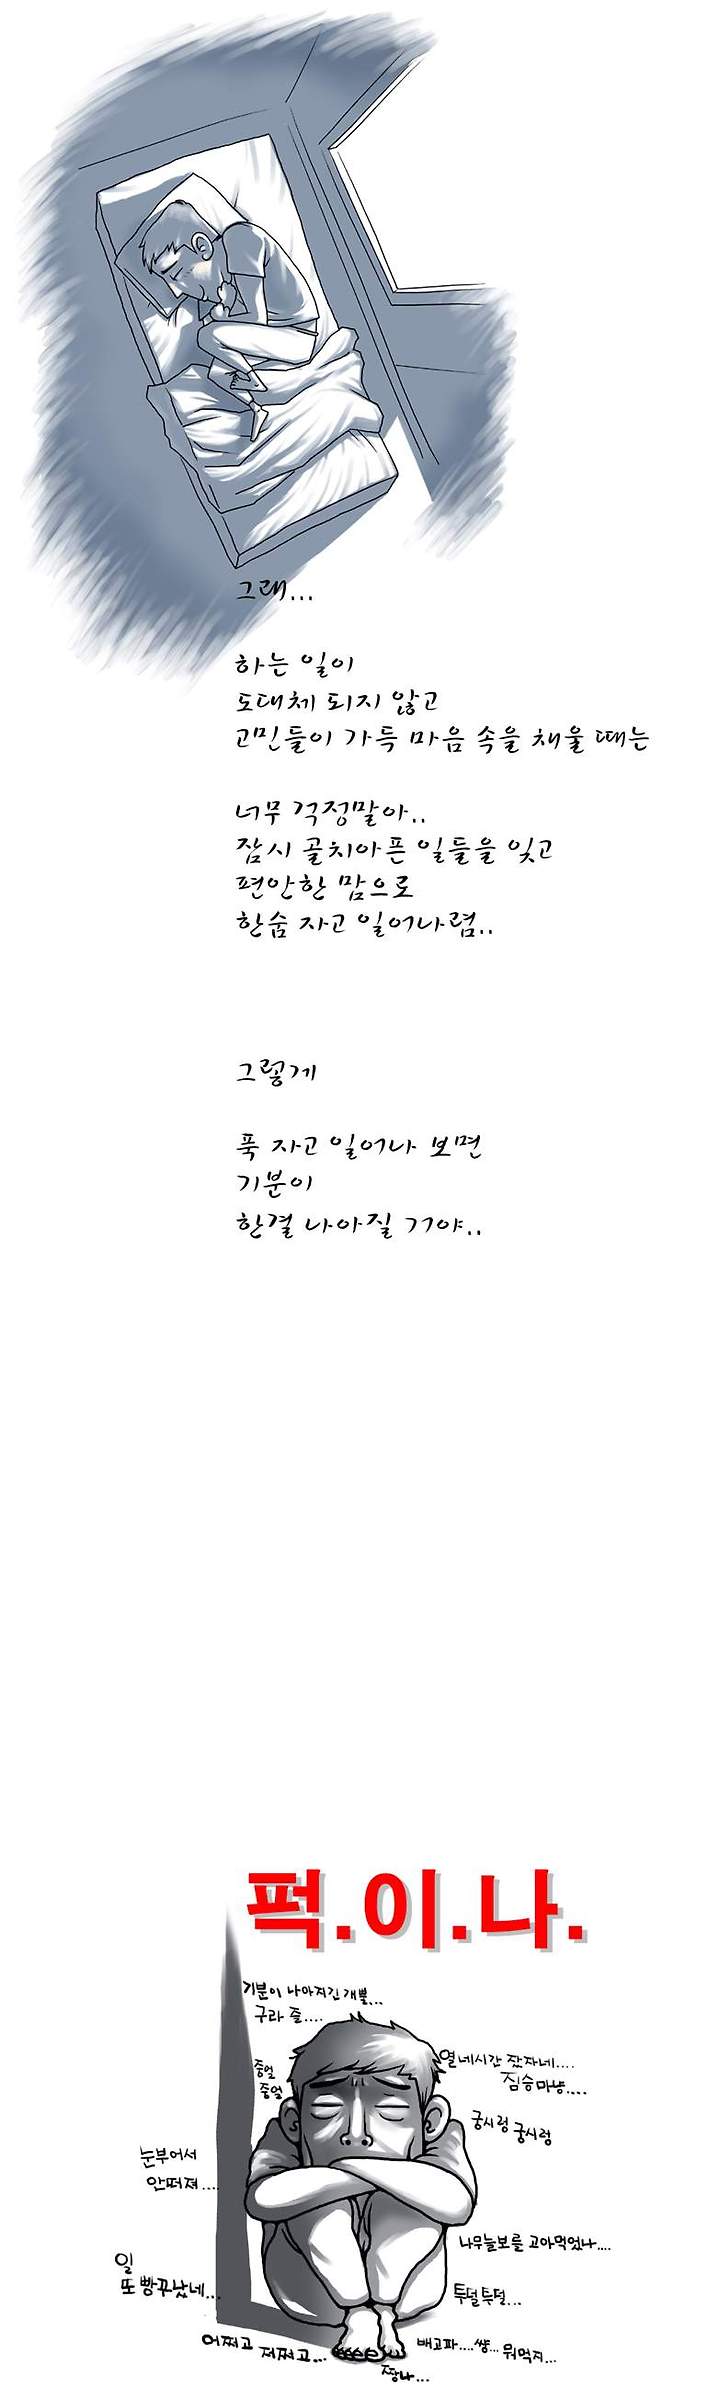 그래...
하는 일이
도대체 되지 않고
고민들이 가득 마음 속을 채울 때는
너무 걱정말아..
잠시 골치아픈 일들을 잊고
편안한 맘으로
한숨 자고 일어나렴..
그렇게
푹 자고 일어나 보면
기분이
한결 나아질 거야..
퍽.이.나.
기분이 나아지긴 개뿔...
구라 즐....
중얼
중얼
열네시간 잤자네....
짐승마냥....
궁시렁 궁시렁
눈부어서
안떠져....
나무늘보를 고아먹었나....
일
또 빵꾸났네...
투덜투덜...
어쩌고 저쩌고...
배고파....썅... 뭐먹지...
짱나...